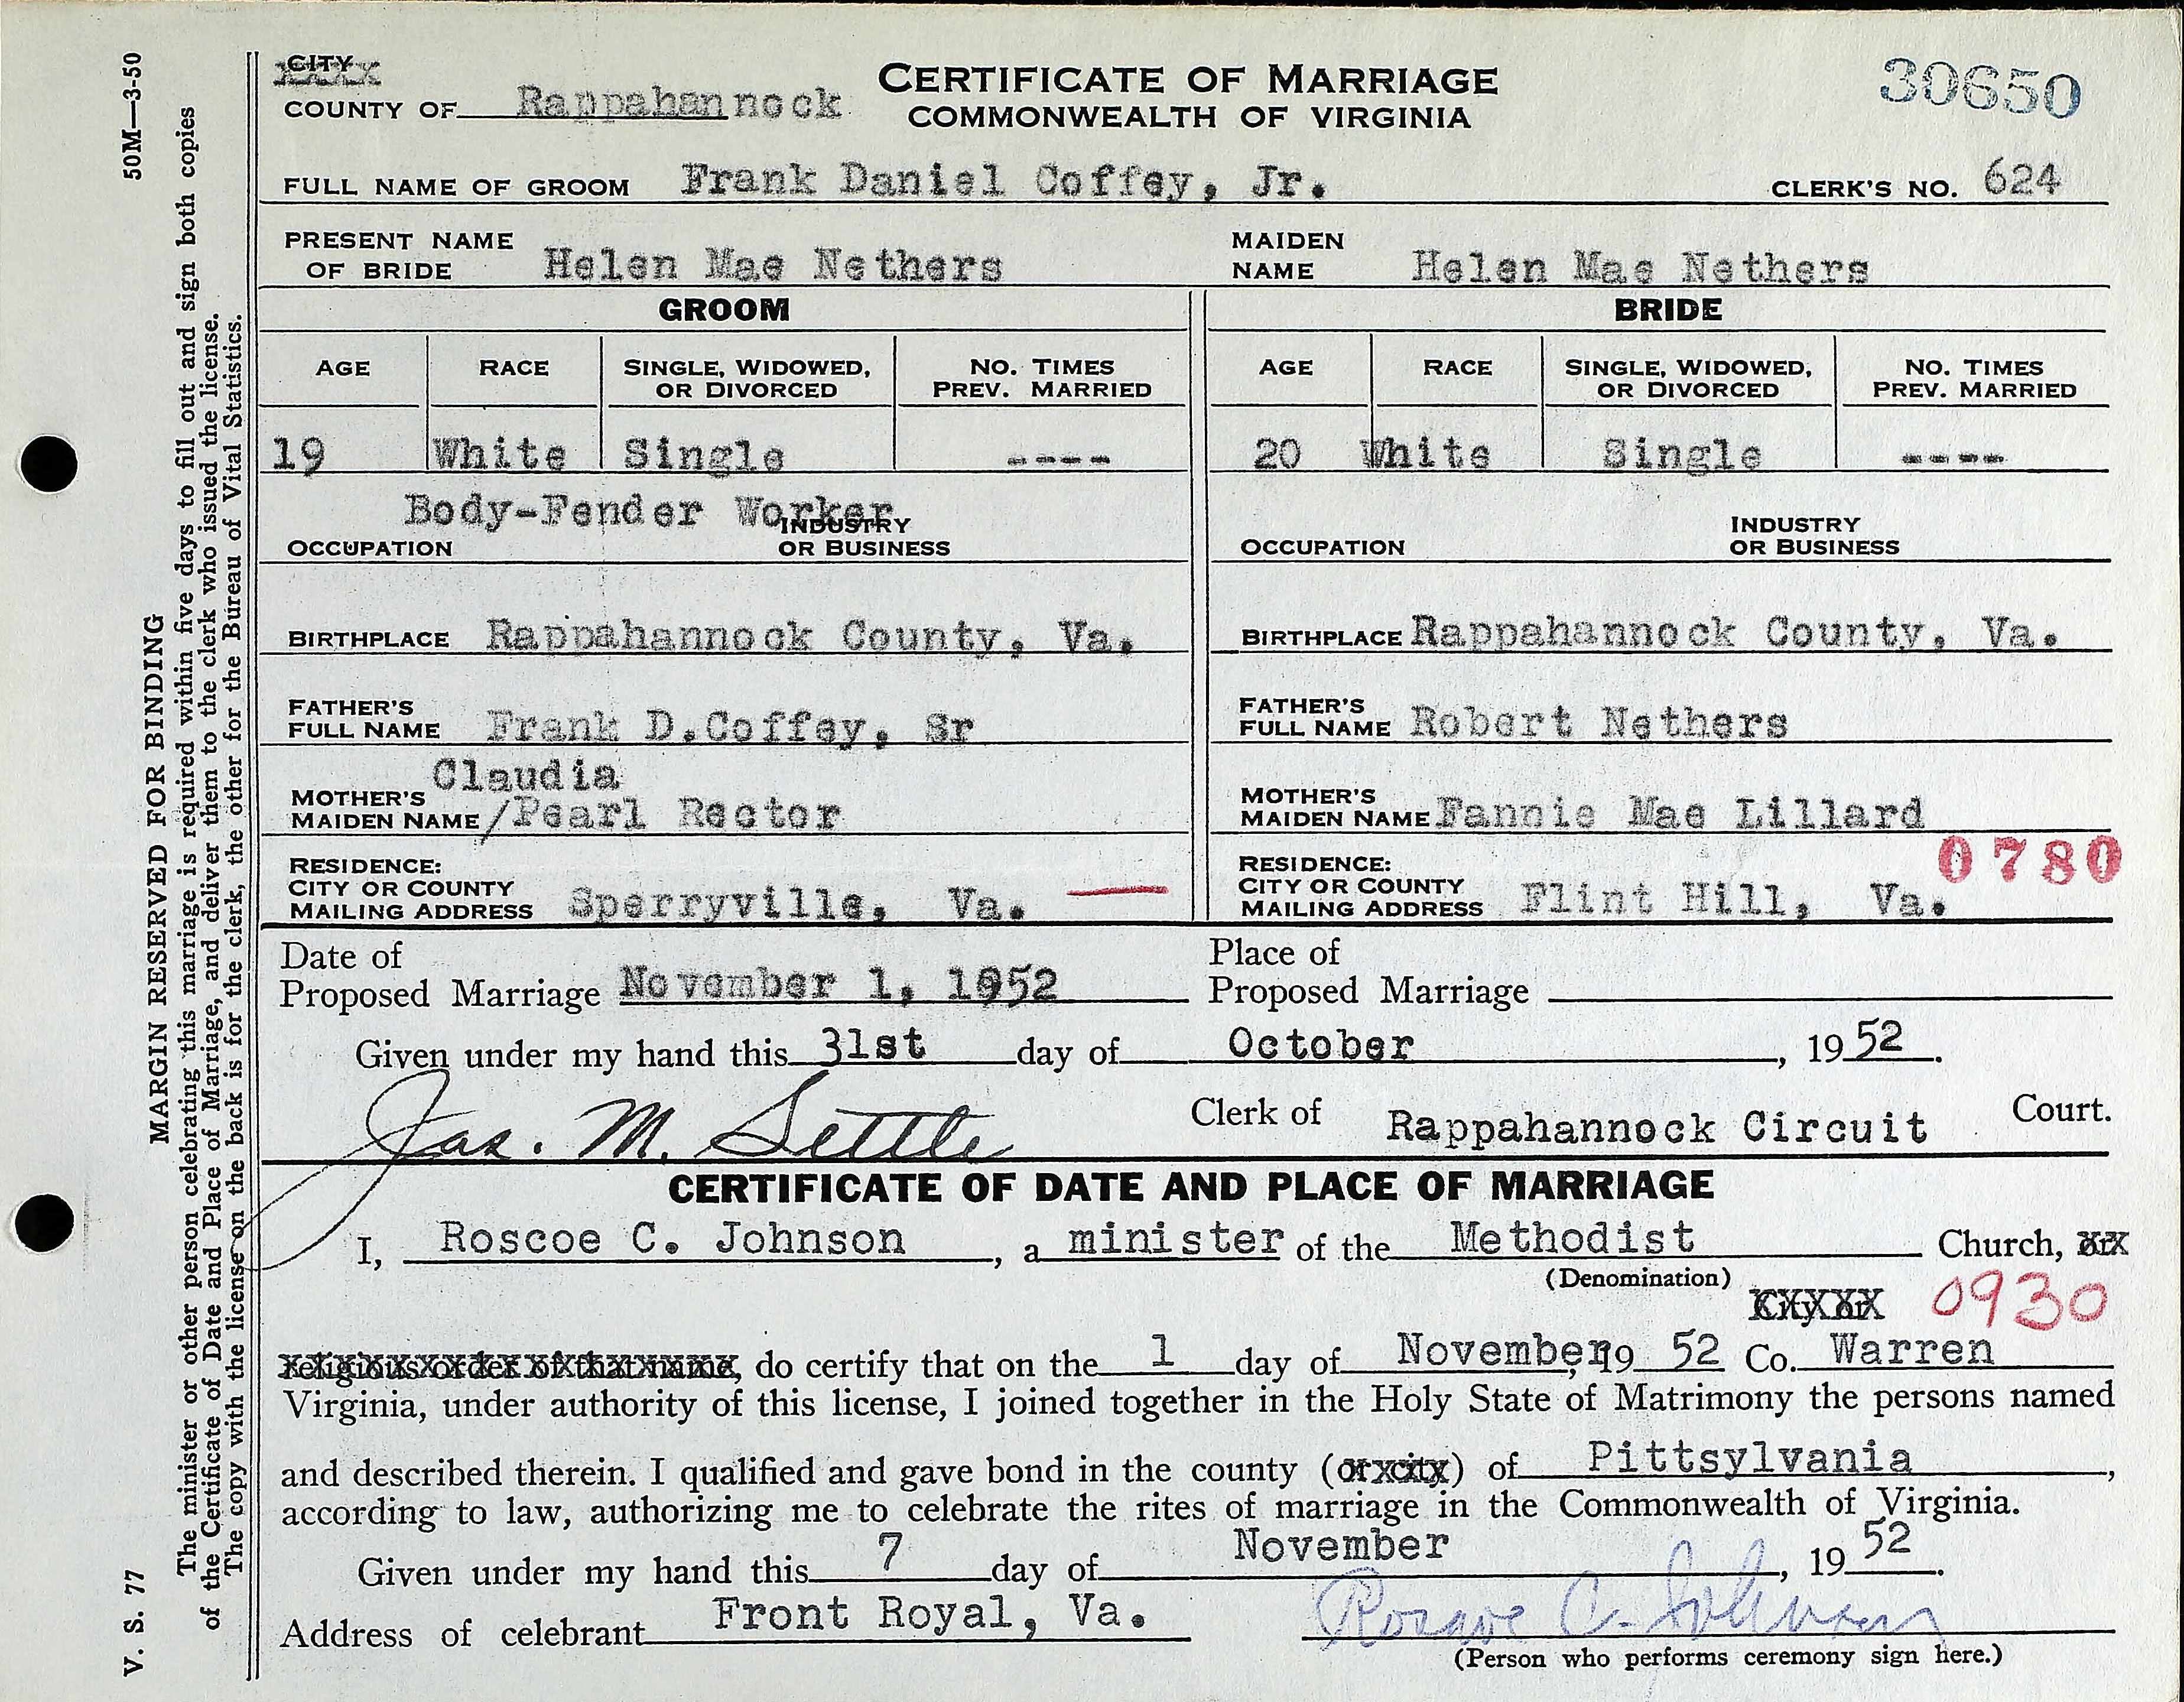 CITY
COUNTY OF Rappahannock
CERTIFICATE OF MARRIAGE
COMMONWEALTH OF VIRGINIA
30650
FULL NAME OF GROOM Frank Daniel Coffey, Jr. CLERK'S NO. 624
PRESENT NAME
OF BRIDE Helen Mae Nethers
MAIDEN
NAME Helen Mae Nethers
GROOM
AGE RACE SINGLE, WIDOWED, NO. TIMES
OR DIVORCED PREV. MARRIED
19 White Single ----
Body-Fender Worker
OCCUPATION INDUSTRY
OR BUSINESS
BIRTHPLACE Rappahannock County, Va.
FATHER'S
FULL NAME Frank D.Coffey, Sr
Claudia
MOTHER'S
MAIDEN NAME /Pearl Rector
RESIDENCE:
CITY OR COUNTY
MAILING ADDRESS Sperryville, Va.
BRIDE
AGE RACE SINGLE, WIDOWED, NO. TIMES
OR DIVORCED PREV. MARRIED
20 White Single ----
OCCUPATION INDUSTRY
OR BUSINESS
BIRTHPLACE Rappahannock County, Va.
FATHER'S
FULL NAME Robert Nethers
MOTHER'S
MAIDEN NAME Fannie Mae Lillard
0780
RESIDENCE:
CITY OR COUNTY
MAILING ADDRESS Flint Hill, Va.
Date of
Proposed Marriage November 1, 1952
Place of
Proposed Marriage
Given under my hand this 31st day of October, 19 52.
Jas. M. Settle Clerk of Rappahannock Circuit Court.
CERTIFICATE OF DATE AND PLACE OF MARRIAGE
I, Roscoe C. Johnson, a minister of the Methodist Church, or
(Denomination)
City or 0930
religious order of that name, do certify that on the 1 day of November, 19 52 Co. Warren
Virginia, under authority of this license, I joined together in the Holy State of Matrimony the persons named
and described therein. I qualified and gave bond in the county (or city) of Pittsylvania,
according to law, authorizing me to celebrate the rites of marriage in the Commonwealth of Virginia.
Given under my hand this 7 day of November, 19 52.
Address of celebrant Front Royal, Va. Roscoe C. Johnson
(Person who performs ceremony sign here.)
V. S. 77 50M—3-50
MARGIN RESERVED FOR BINDING
The minister or other person celebrating this marriage is required within five days to fill out and sign both copies
of the Certificate of Date and Place of Marriage, and deliver them to the clerk who issued the license.
The copy with the license on the back is for the clerk, the other for the Bureau of Vital Statistics.